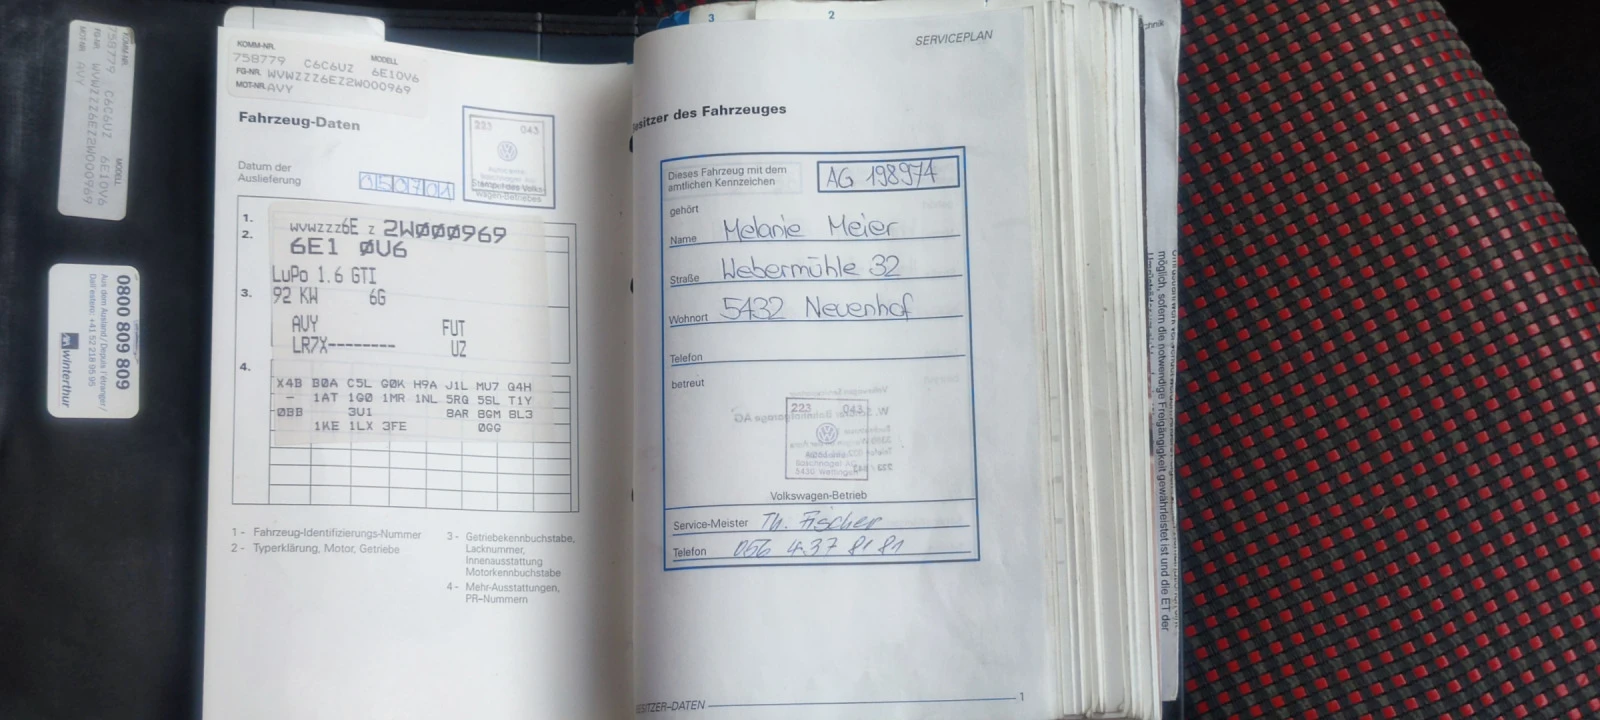 3
2
KOMM-NR.
MODELL
758779 C6C6UZ 6E10V6
FG-NR. WVWZZZ6EZ2W000969
MOT-NR. AVY
Fahrzeug-Daten
223 043
Datum der
Auslieferung
050701
Stempel des Volks-
wagen-Betriebes
1.
2.
3.
4.
WVWZZZ6E Z 2W000969
6E1 0V6
LUPO 1.6 GTI
92 KW 6G
AVY FUT
LR7X-------- UZ
X4B B0A C5L G0K H9A J1L MU7 Q4H
- 1AT 1G0 1MR 1NL 5RQ 5SL T1Y
0BB 3U1 8AR 8GM 8L3
1KE 1LX 3FE 0GG
1 - Fahrzeug-Identifizierungs-Nummer
2 - Typerklärung, Motor, Getriebe
3 - Getriebekennbuchstabe,
Lacknummer,
Innenausstattung
Motorkennbuchstabe
4 - Mehr-Ausstattungen,
PR-Nummern
KOMM-NR.
MODELL
758779 C6C6UZ 6E10V6
FG-NR. WVWZZZ6EZ2W000969
MOT-NR. AVY
0800 809 809
Aus dem Ausland / Depuis l'étranger /
Dall'estero: +41 52 218 95 95
winterthur
SERVICEPLAN
Besitzer des Fahrzeuges
Dieses Fahrzeug mit dem
amtlichen Kennzeichen
AG 198974
gehört
Name Melanie Meier
Straße Webermühle 32
Wohnort 5432 Neuenhof
Telefon
betreut
223 043
Volkswagen-Betrieb
Service-Meister Th. Fischer
Telefon 056 437 81 81
BESITZER-DATEN 1
möglich, sofern die notwendige Freigängigkeit gewährleistet ist und die ET der